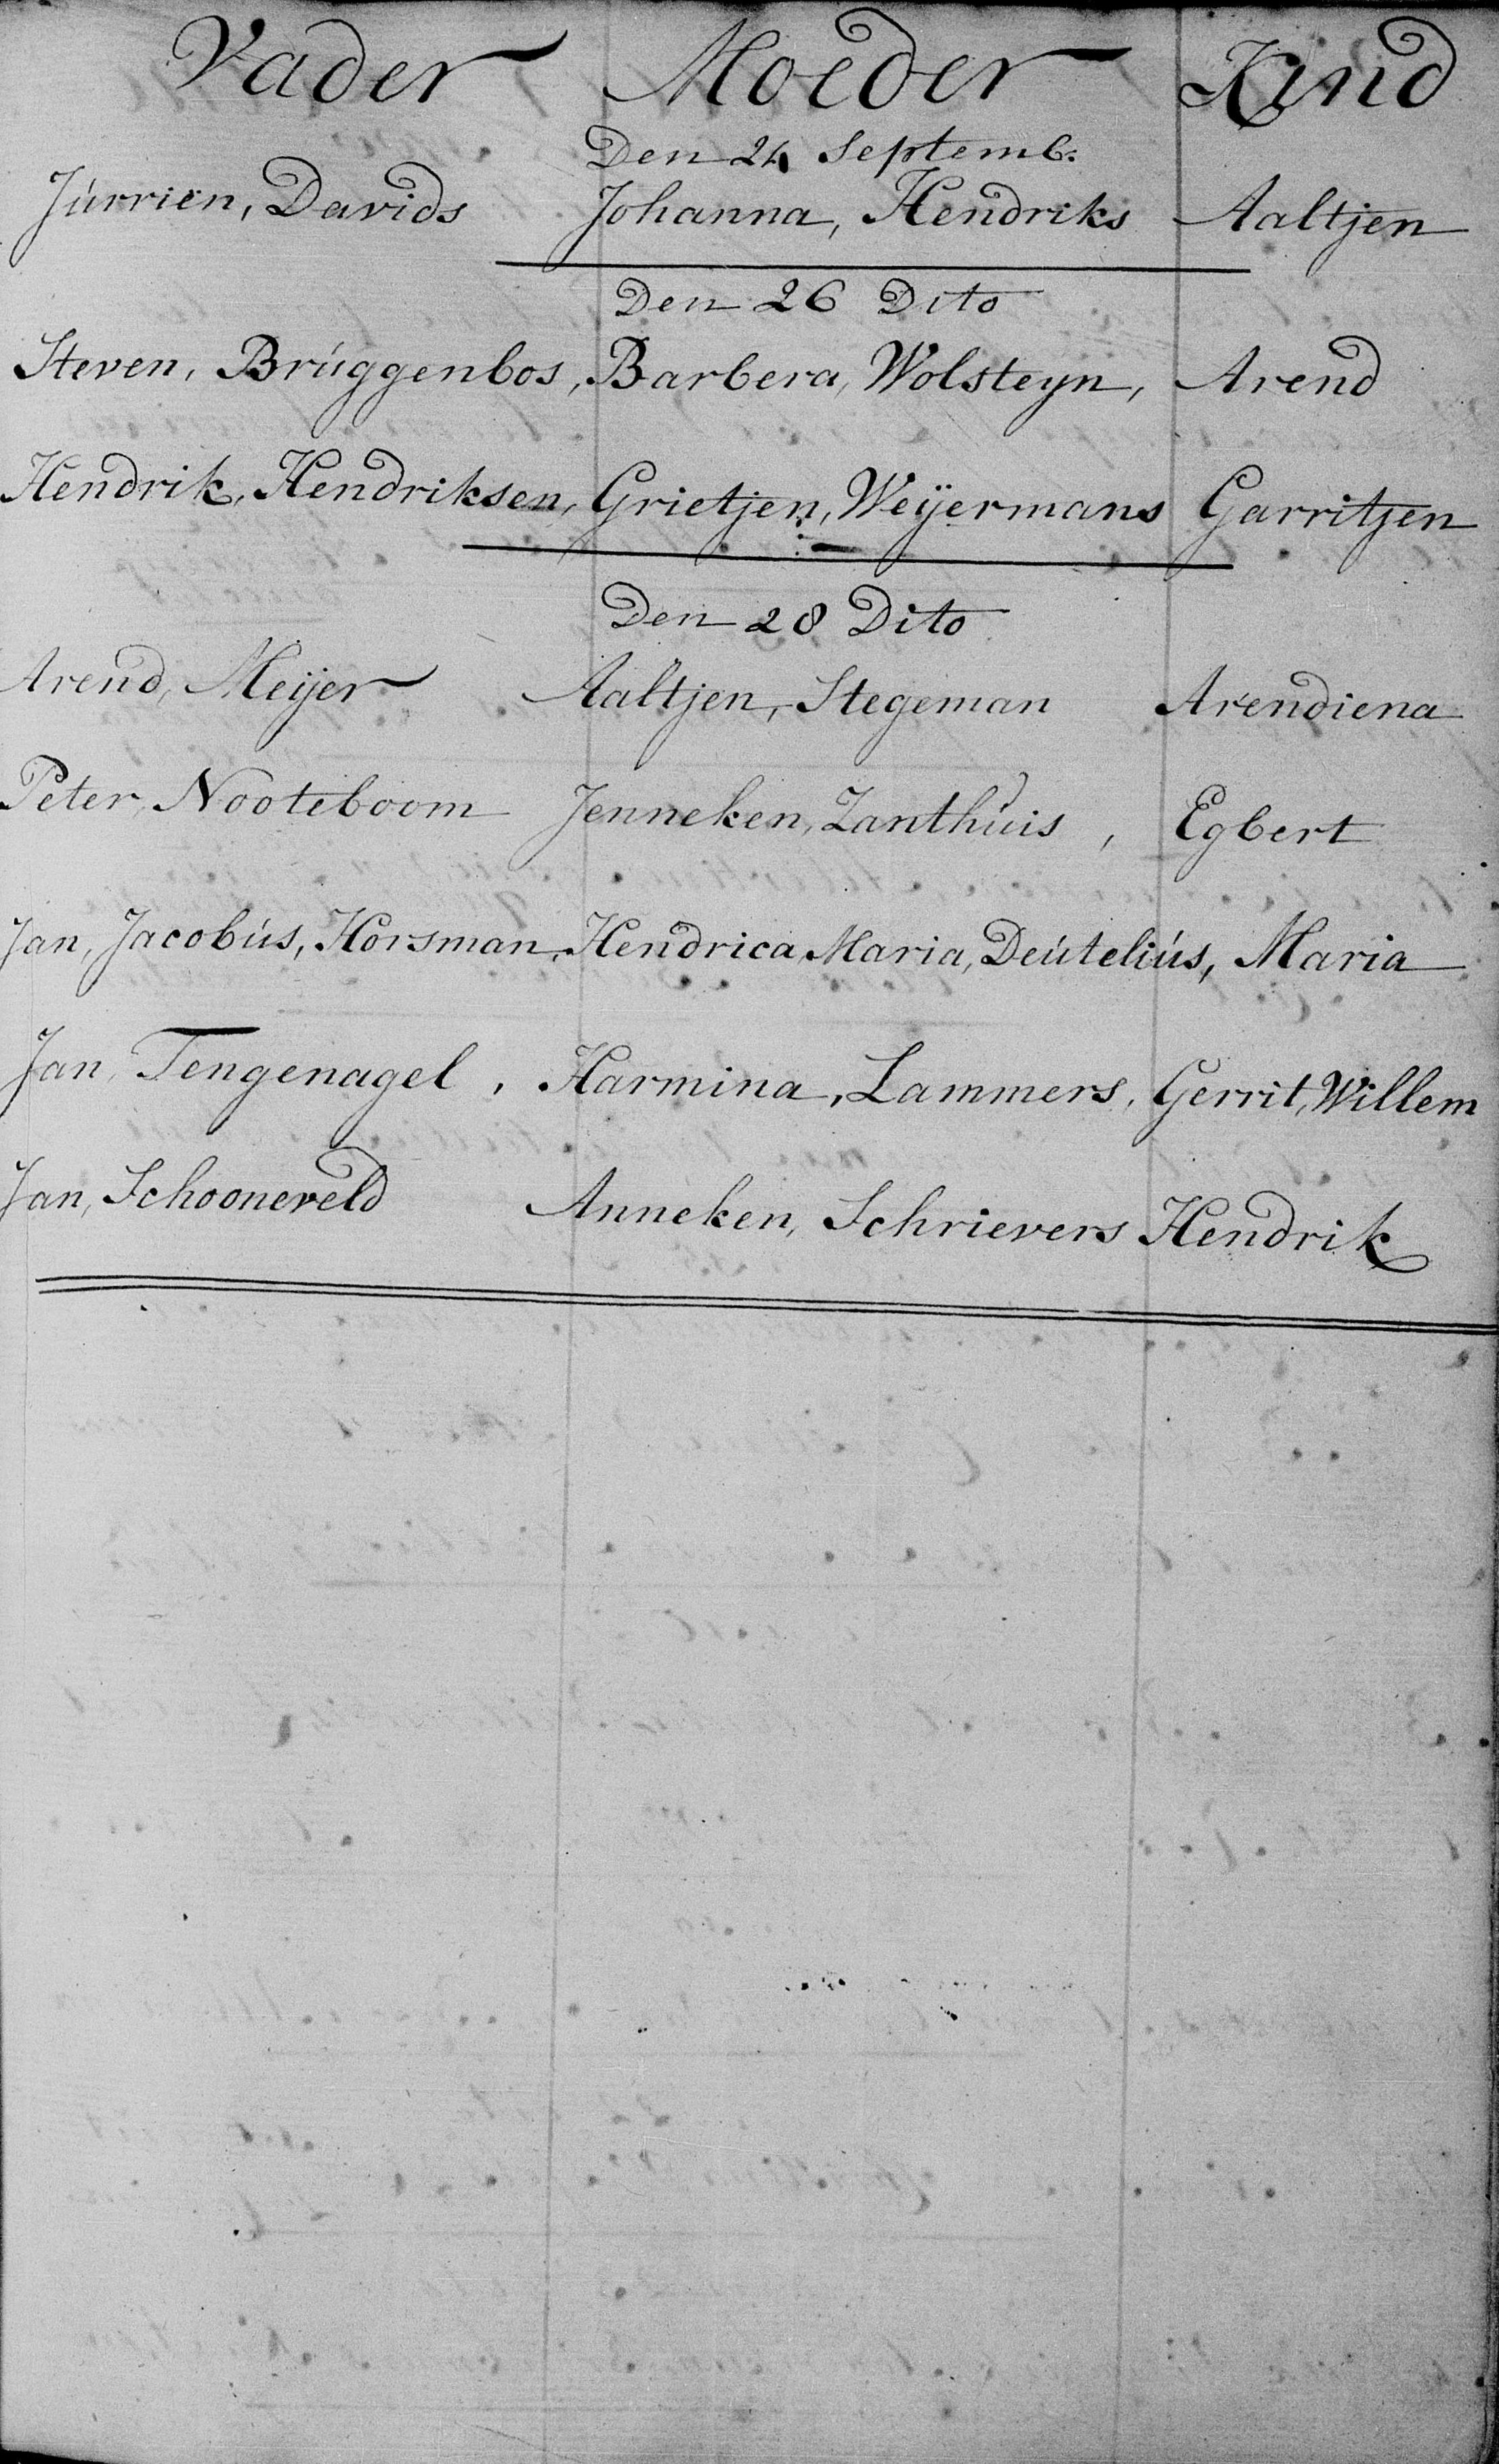 Vader Moeder Kind
Den 24 Septemb:
Júrrien, Davids Johanna, Hendriks Aaltjen
Den 26 Dito
Steven, Brúggenbos, Barbera, Wolsteyn, Arend
Hendrik, Hendriksen, Grietjen, Weÿermans Garritjen
Den 28 Dito
Arend, Meijer Aaltjen, Stegeman Arendiena
Peter, Nooteboom Jenneken, Zanthúis, Egbert
Jan, Jacobús, Horsman, Hendrica, Maria, Deúteliús, Maria
Jan, Tengenagel, Harmina, Lammers, Gerrit, Willem
Jan, Schooneveld Anneken, Schrievers Hendrik